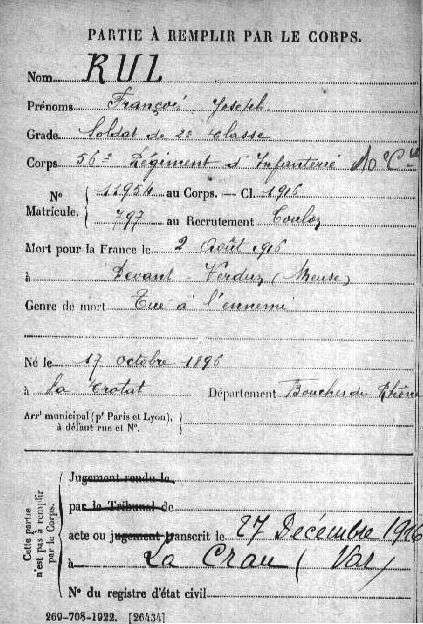 PARTIE À REMPLIR PAR LE CORPS.
Nom RUL
Prénoms François Joseph
Grade Soldat de 2e classe
Corps 56e Régiment d'Infanterie 10e Cie
Nº Matricule. 11954 au Corps. — Cl. 1916
797 au Recrutement Toulon
Mort pour la France le 2 Août 1916
à Devant Verdun (Meuse)
Genre de mort Tué à l'ennemi
Né le 17 octobre 1896
à La Ciotat Département Bouches du Rhône
Arrt municipal (pr Paris et Lyon),
à défaut rue et Nº.
Cette partie n'est pas à remplir par le Corps.
Jugement rendu le
par le Tribunal de
acte ou jugement transcrit le 27 Décembre 1916
à La Crau (Var)
Nº du registre d'état civil
269-708-1922. [26434]